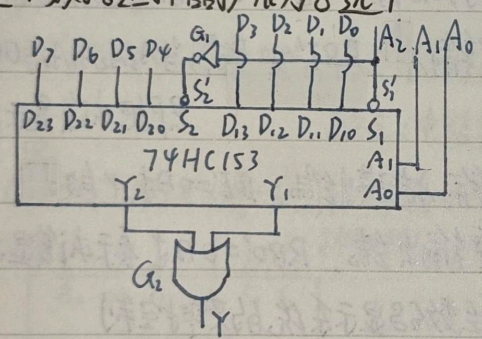 D7 D6 D5 D4 G1 D3 D2 D1 D0 A2 A1 A0
S2' S1'
D23 D22 D21 D20 S2 D13 D12 D11 D10 S1
74HC153
A1
Y2 Y1 A0
G2
Y